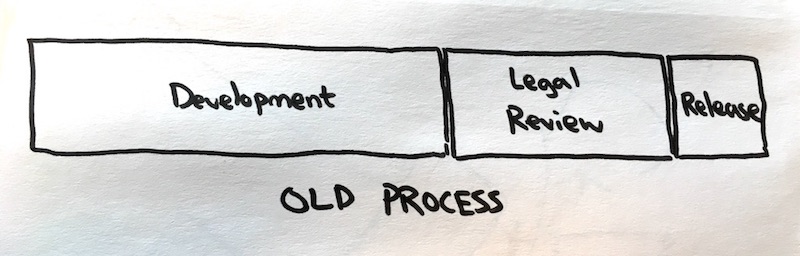 Development
Legal
Review
Release
OLD PROCESS